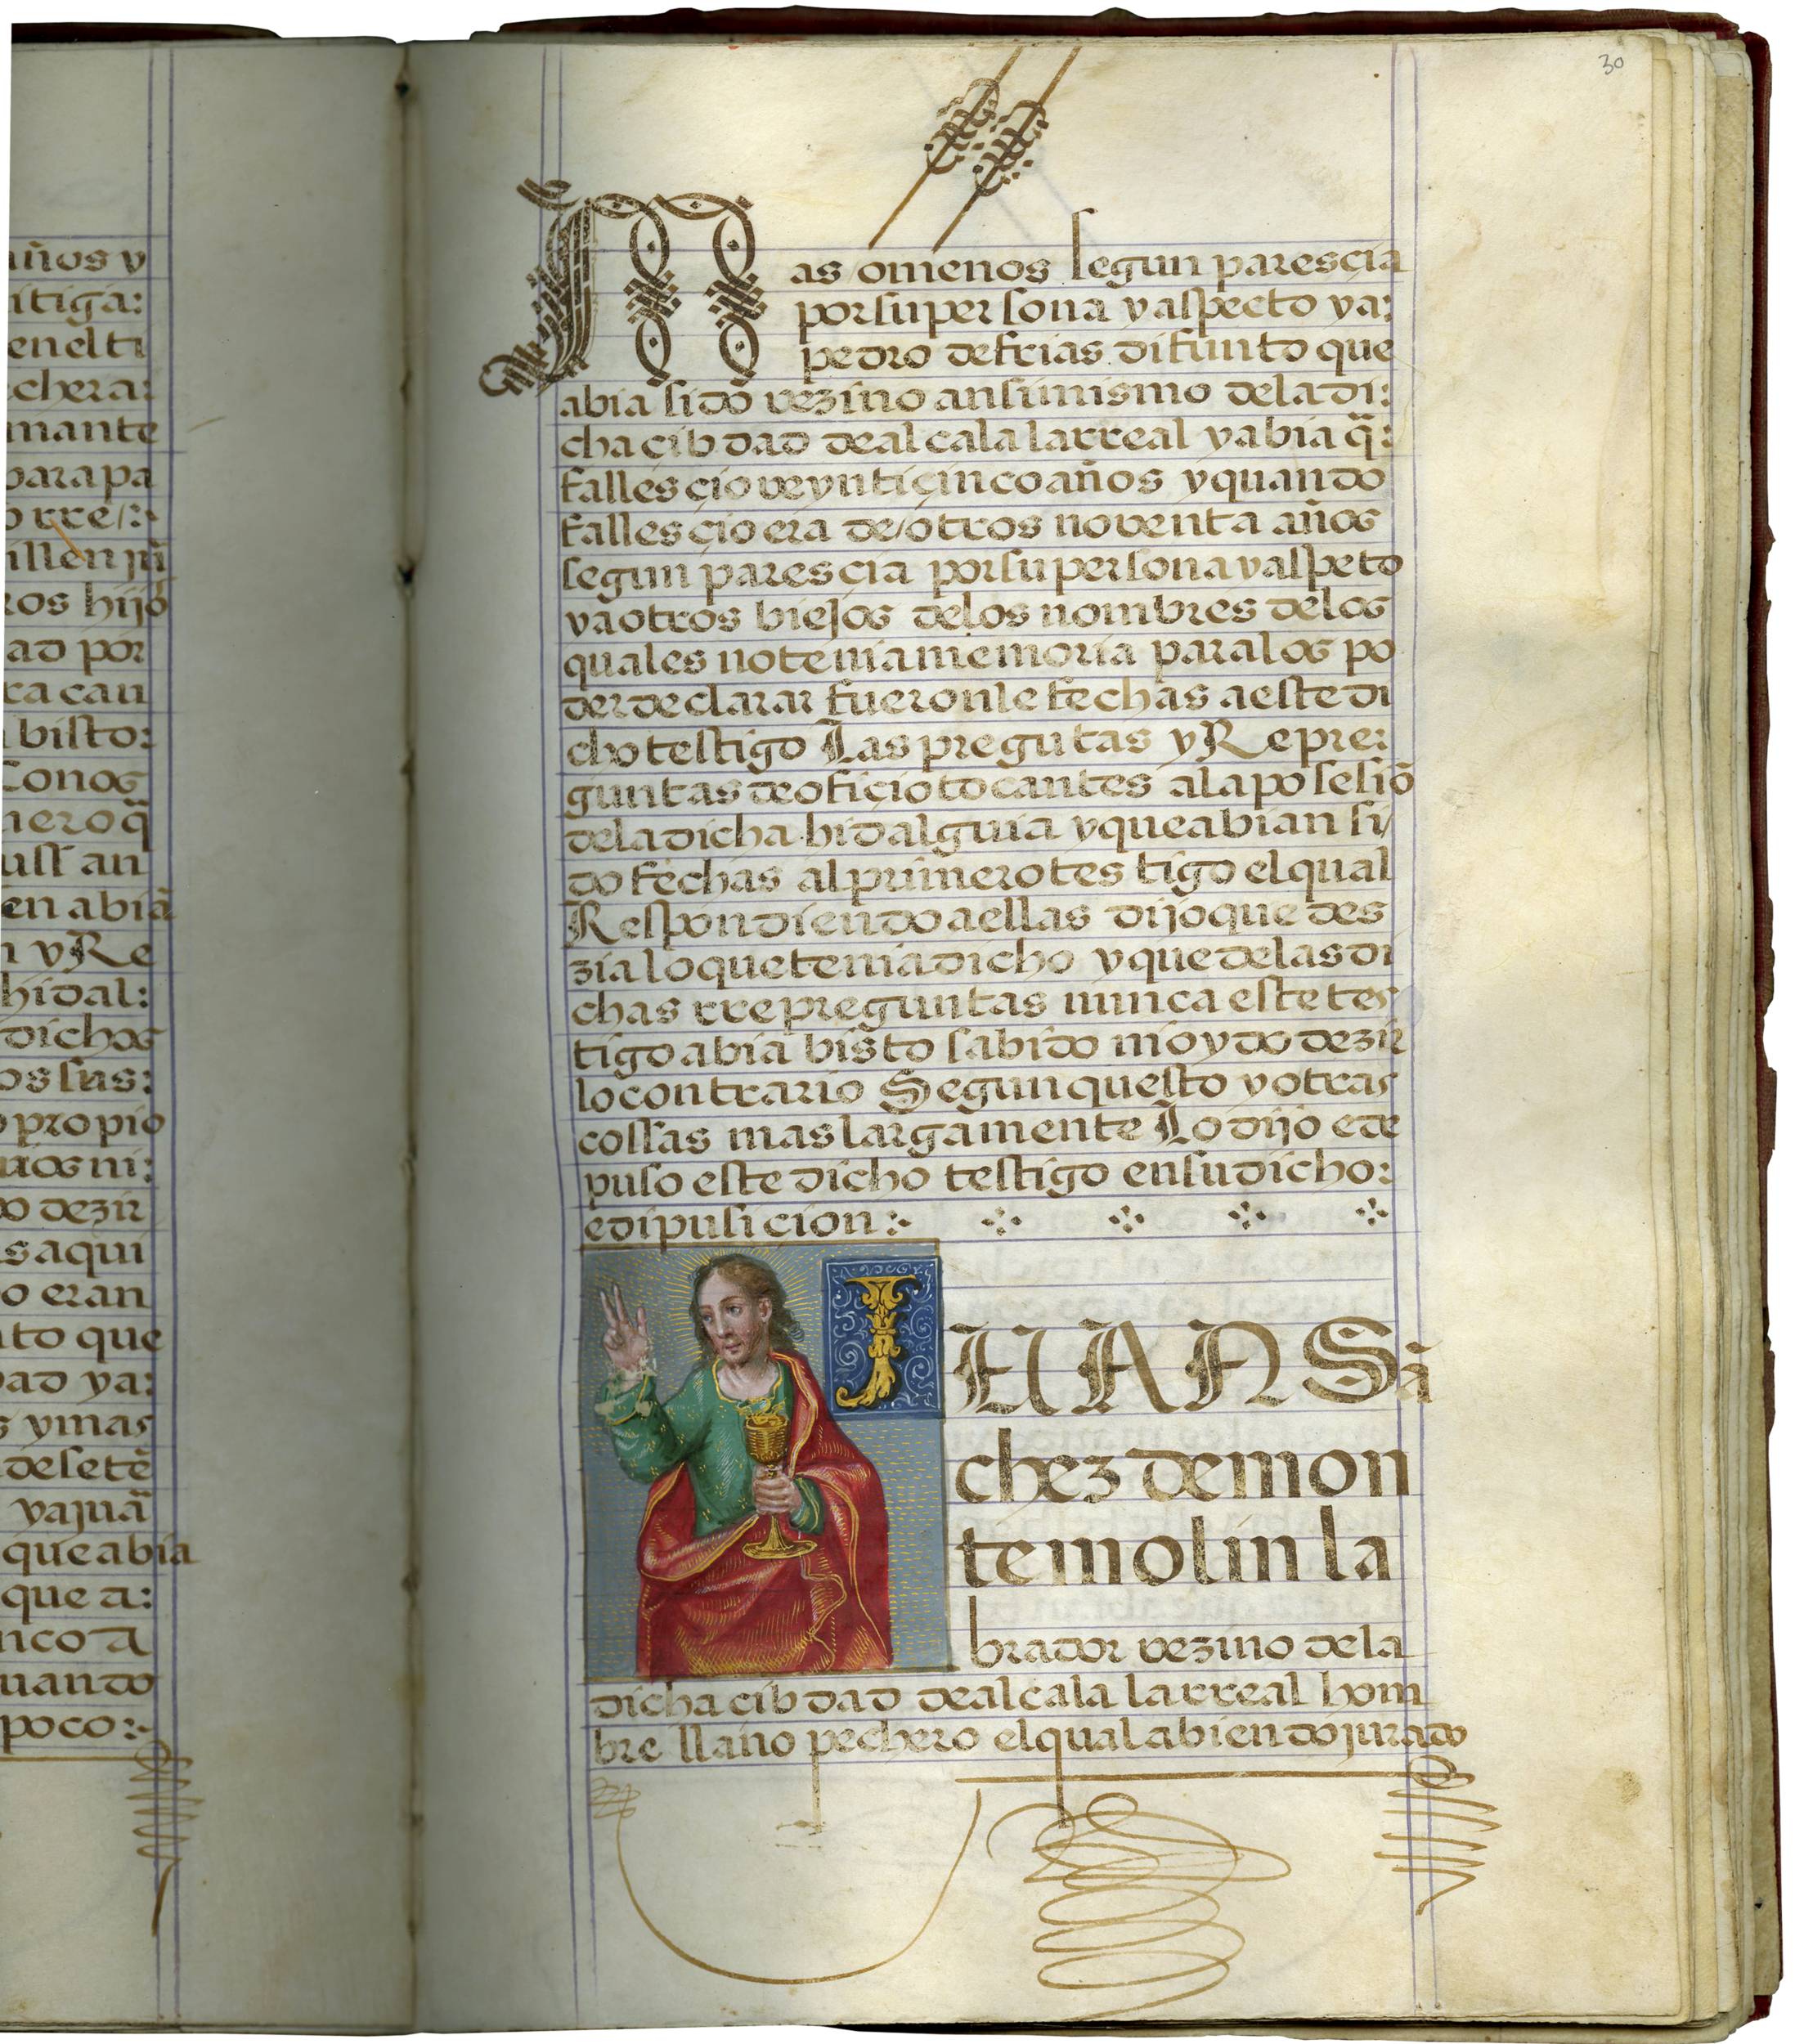 años y
itiga:
en el ti
chera:
mante
para pa
o rre/:~
illen jũ
ros hijo
ad por
ra can
bisto:
Conos
nero q̃
uss an
en abiã
n y Re
hidal:
dichos
os sus:
propio
rios ni:
do dezir
s aqui
o eran
nto que
dad ya:
s y mas
de setẽ
y a juã
que abia
que a:
nco a
uando
poco:~
30
Mas o menos segun parescia
por su persona y aspecto y a:
pedro de frias difunto que
abia sido vezino ansimismo de la di:
cha cibdad de alcala la rreal y abia q̃:
fallescio veynti çinco años y quando
fallesçio era de/otros noventa años
segun parescia por su persona y aspeto
y a otros biejos de los nombres de los
quales no tenia memoria para los po
der declarar fueron le fechas a este di
cho testigo Las pregutas y Repre:
guntas de ofiçio tocantes a la posesiõ
de la dicha hidalguia y que abian si/
do fechas al primero testigo el qual
Respondiendo a ellas dijo que des
zia lo que tenia dicho y que de las di
chas rrepreguntas nunca este tes
tigo abia bisto sabido ni oydo dezir
lo contrario Segun questo y otras
cossas mas largamente Lo dijo e de
puso este dicho testigo en su dicho:
e dipusicion:~
JUAN Sã
chez de mon
temolin la
brador vezino de la
dicha cibdad de alcala la rreal hom
bre llano pechero el qual abiendo jurado